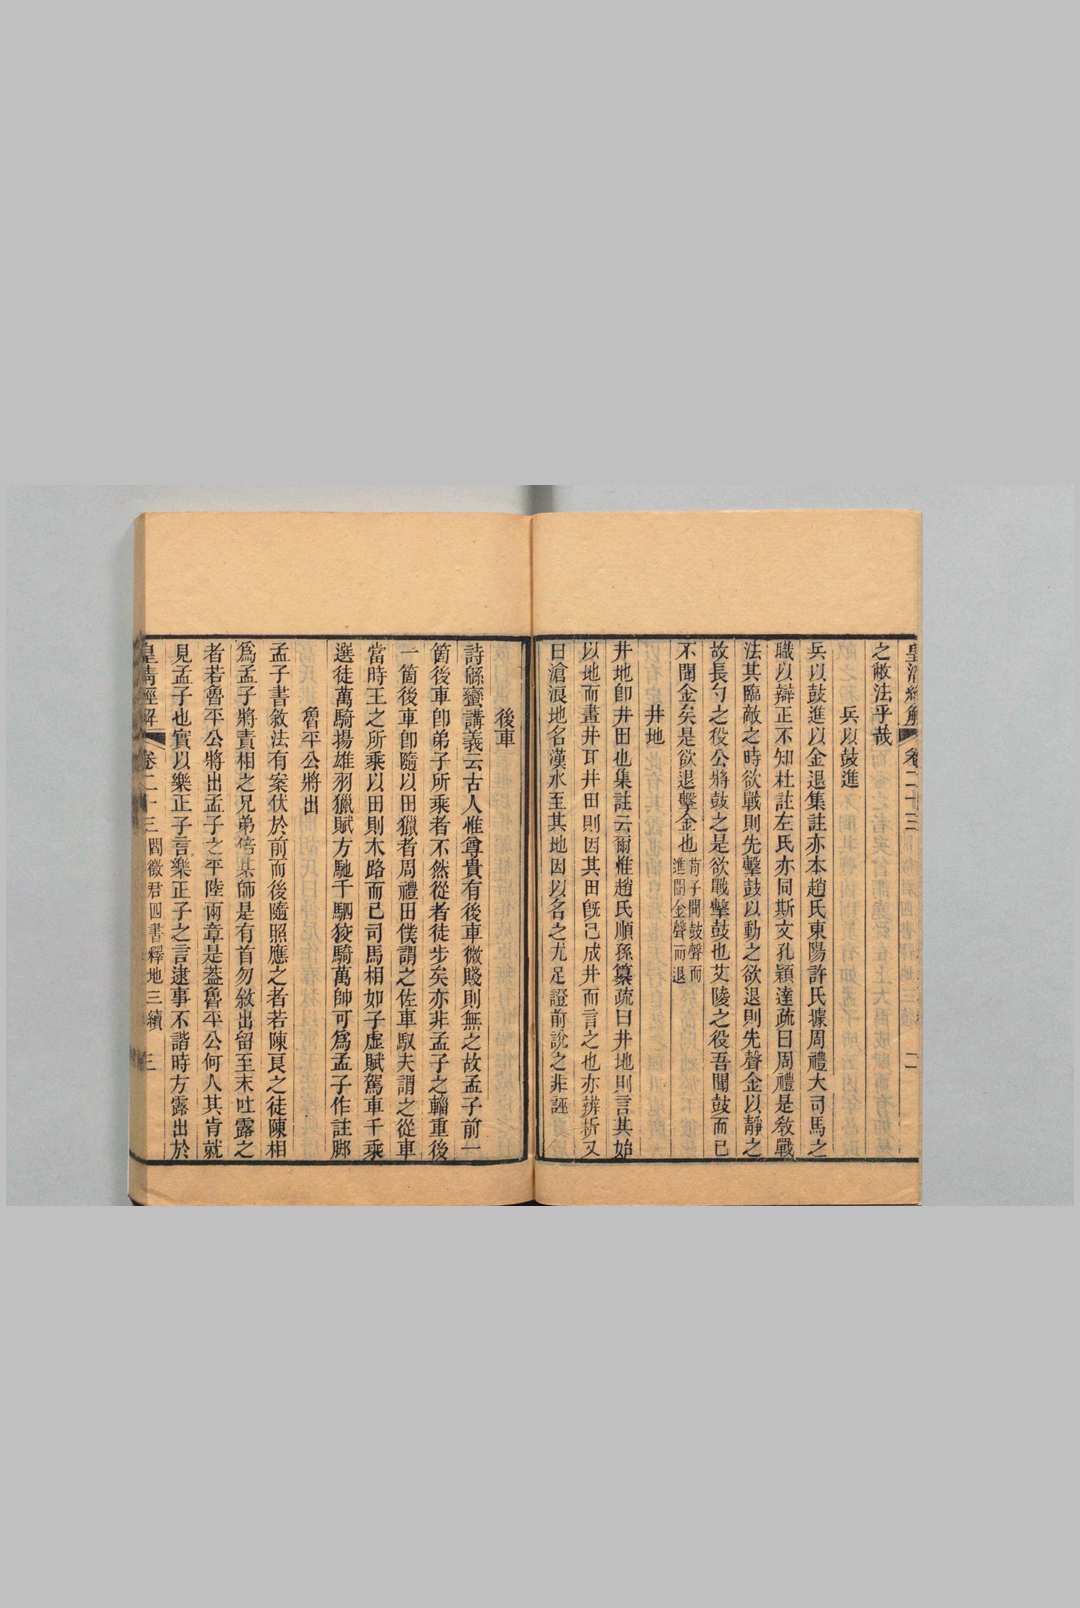 皇清經解
卷二十三
之敝法乎哉
兵以鼓進
兵以鼓進以金退集註亦本趙氏東陽許氏據周禮大司馬之
職以辯正不知杜註左氏亦同斯文孔穎達疏曰周禮是敎戰
法其臨敵之時欲戰則先擊鼓以動之欲退則先聲金以靜之
故長勺之役公將鼓之是欲戰擊鼓也艾陵之役吾聞鼓而已
不聞金矣是欲退擊金也
荀子聞鼓聲而
進聞金聲而退
井地
井地卽井田也集註云爾惟趙氏順孫纂疏曰井地則言其始
以地而畫井耳井田則因其田旣已成井而言之也亦辨析又
曰滄浪地名漢水至其地因以名之尤足證前說之非誣
後車
詩緜蠻講義云古人惟尊貴有後車微賤則無之故孟子前一
箇後車卽弟子所乘者不然從者徒步矣亦非孟子之輜重後
一箇後車卽隨以田獵者周禮田僕謂之佐車馭夫謂之從車
當時王之所乘以田則木路而已司馬相如子虛賦駕車千乘
選徒萬騎揚雄羽獵賦方馳千駟狡騎萬帥可爲孟子作註腳
魯平公將出
孟子書敘法有案伏於前而後隨照應之者若陳良之徒陳相
爲孟子將責相之兄弟倍其師是有首勿敘出留至末吐露之
者若魯平公將出孟子之平陸兩章是葢魯平公何人其肯就
見孟子也實以樂正子言樂正子之言逮事不諧時方露出於
皇清經解
卷二十三
閻徵君四書釋地三續
三